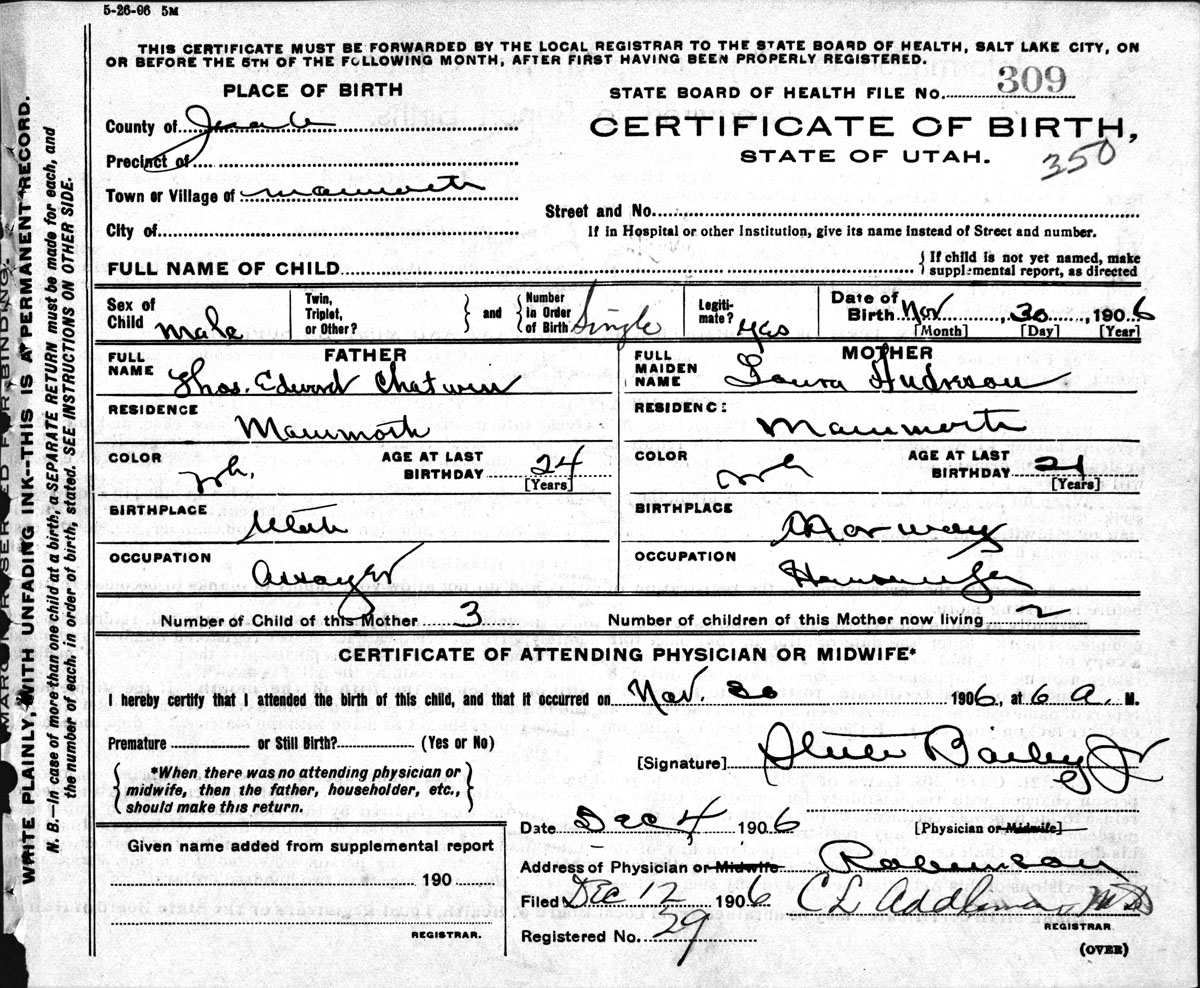 5-26-06 5M
THIS CERTIFICATE MUST BE FORWARDED BY THE LOCAL REGISTRAR TO THE STATE BOARD OF HEALTH, SALT LAKE CITY, ON
OR BEFORE THE 5TH OF THE FOLLOWING MONTH, AFTER FIRST HAVING BEEN PROPERLY REGISTERED.
PLACE OF BIRTH
STATE BOARD OF HEALTH FILE No. 309
County of
CERTIFICATE OF BIRTH,
STATE OF UTAH.
350
Precinct of
Town or Village of Mammoth
Street and No.
City of
If in Hospital or other Institution, give its name instead of Street and number.
FULL NAME OF CHILD
{ If child is not yet named, make
supplemental report, as directed
Sex of Child Male
Twin, Triplet, or Other?
} and { Number in Order of Birth Single
Legiti-mate? yes
Date of Birth Nov, 30, 1906
[Month] [Day] [Year]
FATHER
FULL NAME Thos. Edward Chatwin
RESIDENCE
Mammoth
COLOR wh. AGE AT LAST BIRTHDAY 24
[Years]
BIRTHPLACE
Utah
OCCUPATION
Assayer
MOTHER
FULL MAIDEN NAME Laura Andreson
RESIDENCE:
Mammoth
COLOR wh AGE AT LAST BIRTHDAY 21
[Years]
BIRTHPLACE
Norway
OCCUPATION
Housewife
Number of Child of this Mother 3
Number of children of this Mother now living 2
CERTIFICATE OF ATTENDING PHYSICIAN OR MIDWIFE*
I hereby certify that I attended the birth of this child, and that it occurred on Nov. 30 1906, at 6 A. M.
Premature or Still Birth? (Yes or No)
[Signature] Steele Bailey Jr
{ *When there was no attending physician or
midwife, then the father, householder, etc.,
should make this return. }
Date Dec 4 1906
[Physician or Midwife]
Given name added from supplemental report
190
REGISTRAR.
Address of Physician or Midwife Robinson
Filed Dec 12 1906
REGISTRAR
Registered No. 29
(OVER)
MARGIN RESERVED FOR BINDING.
WRITE PLAINLY, WITH UNFADING INK--THIS IS A PERMANENT RECORD.
N. B.—In case of more than one child at a birth, a SEPARATE RETURN must be made for each, and
the number of each, in order of birth, stated. SEE INSTRUCTIONS ON OTHER SIDE.